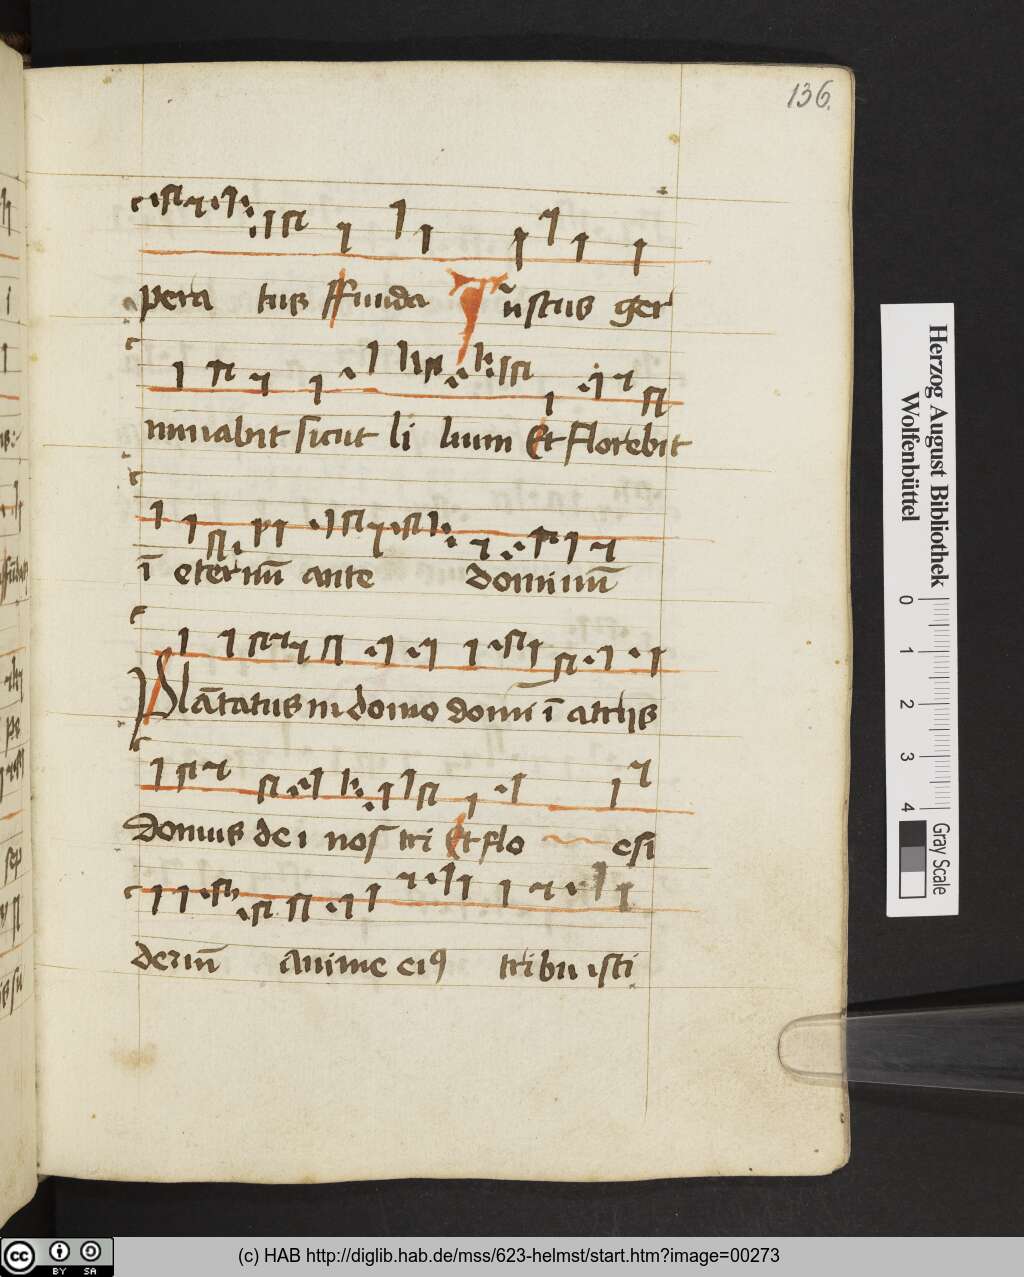 136.
pera tus ffunda Iūstus ger
minabit sicut li lium Et florebit
ī eternū ante dominū
Plātatus in domo domī ī atriis
Domus de i nos tri Et flo esi
deriū anime eiꝯ tribu isti
Herzog August Bibliothek
Wolfenbüttel
0 1 2 3 4 Gray Scale
cc BY SA
(c) HAB http://diglib.hab.de/mss/623-helmst/start.htm?image=00273